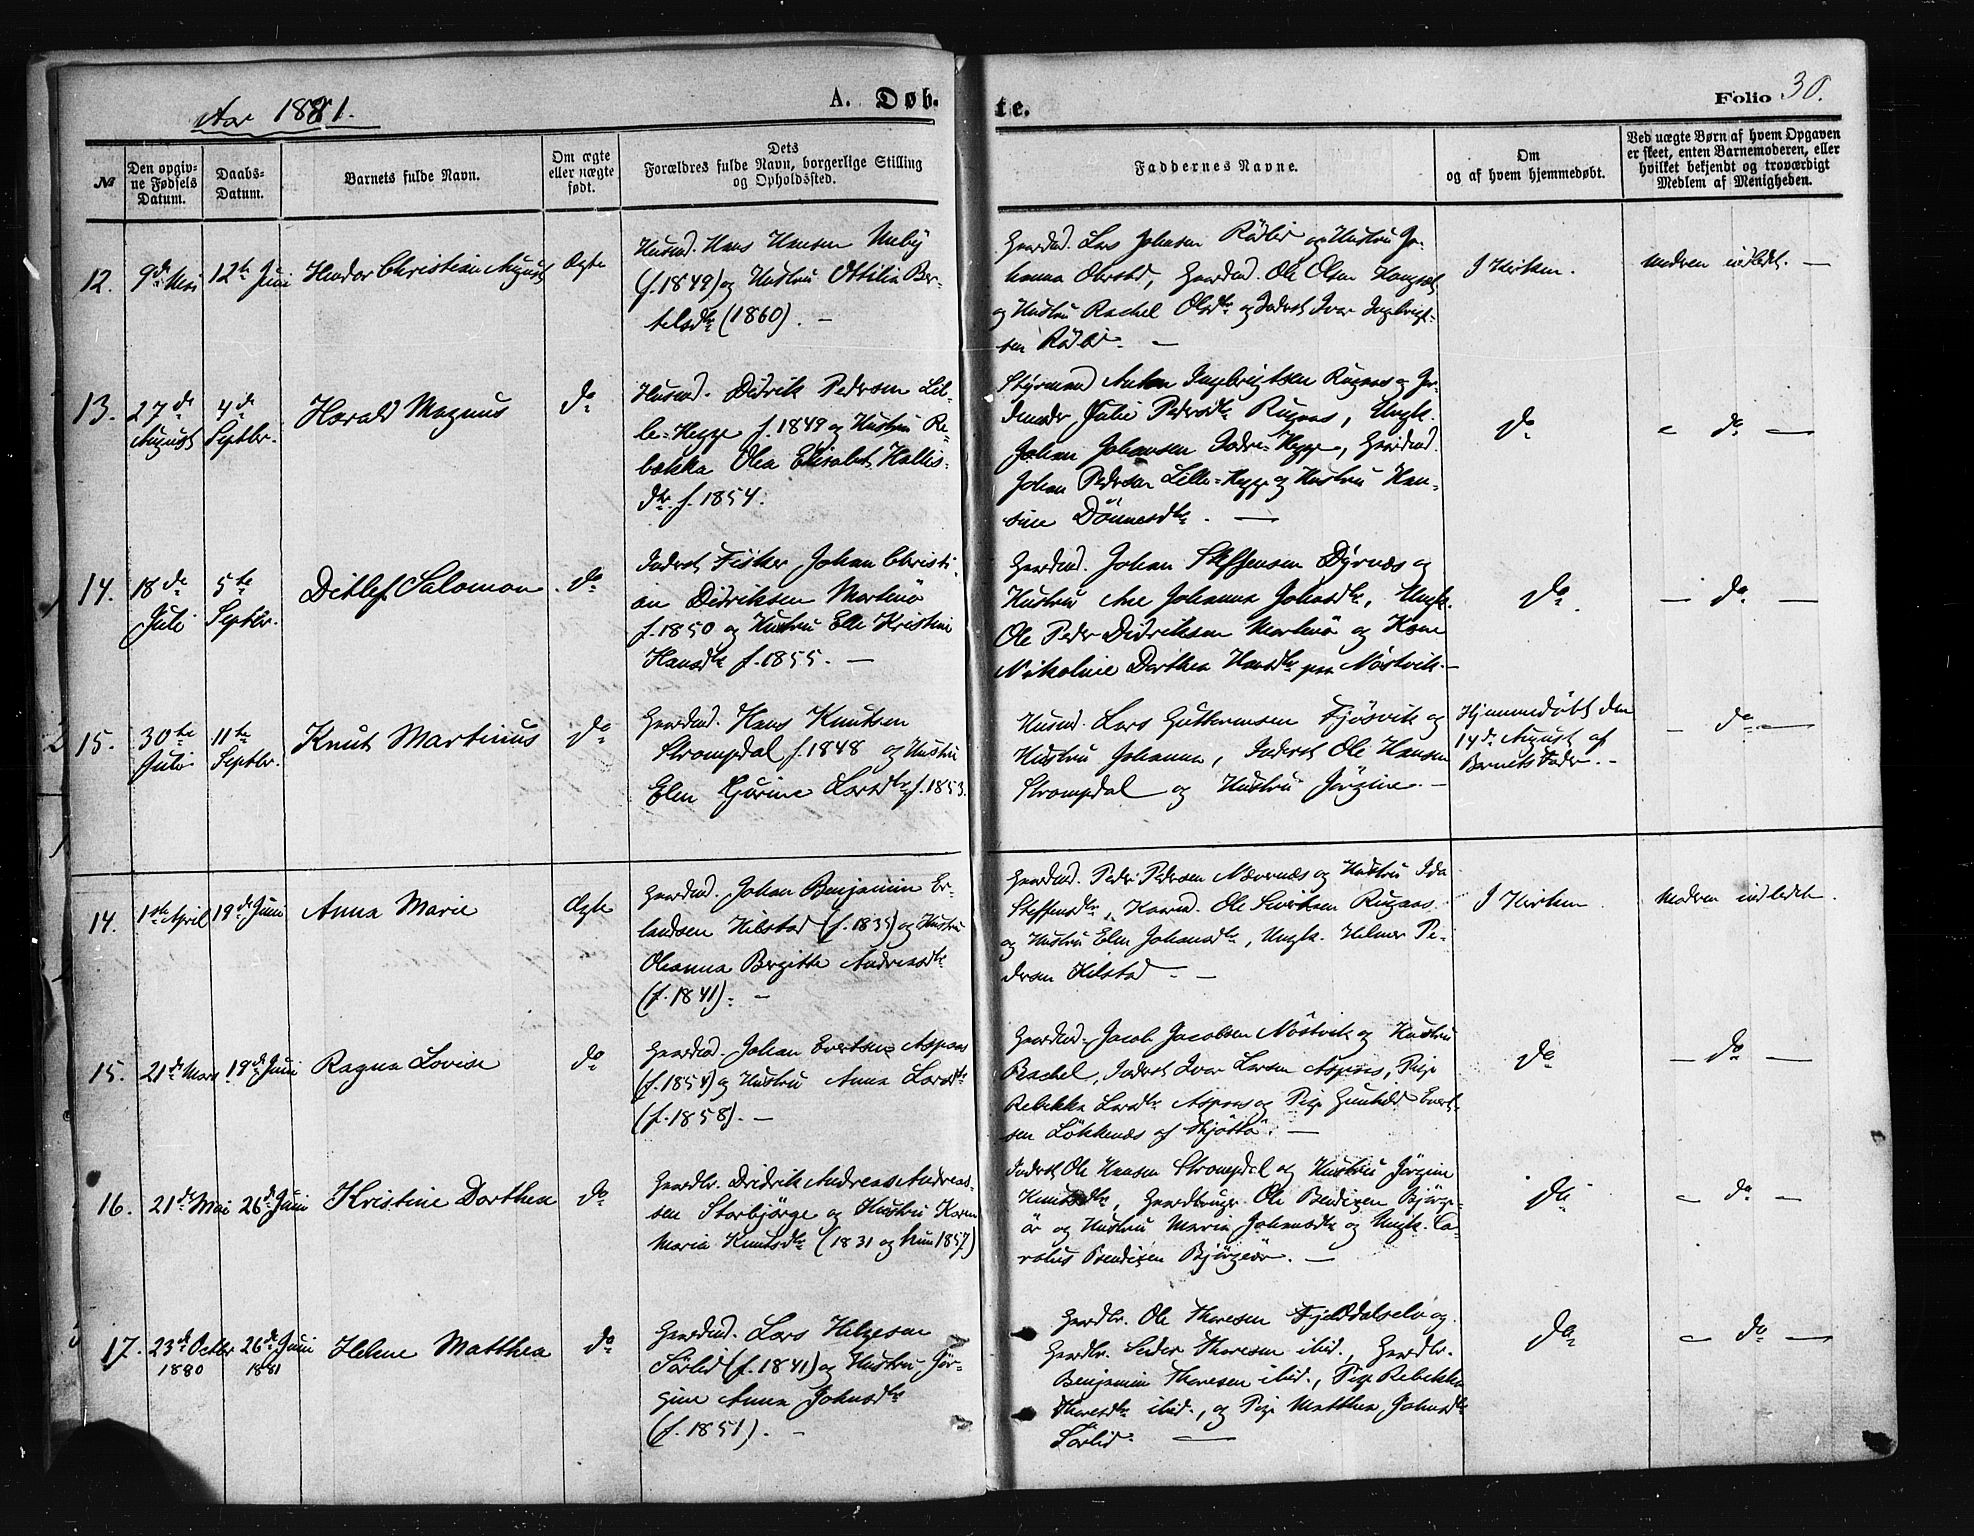 Aar 1881.
A. Døb-
te.
Folio 30.
№
Den opgiv-
ne Fødsels
Datum.
Daabs-
Datum.
Barnets fulde Navn.
Om ægte
eller uægte
født.
Dets
Forældres fulde Navn, borgerlige Stilling
og Opholdssted.
Faddernes Navne.
Om
og af hvem hjemmedøbt.
Ved uægte Børn af hvem Opgaven
er skeet, enten Barnemoderen, eller
hvilket bekjendt og troværdigt
Medlem af Menigheden.
12.
9de Mai
12te Juni
Christian August
Ægte
Husmd. Hans Hansen
(f. 1849) og Hustru Ottilia Ber-
telsdtr (1860). —
Gaardmd. Lars Johnsen Rölid og Hustru Jo-
hanna Olsdtr, Gaardmd. Ole Olsen
og Hustru Rachel Olsdtr og Inderst Ivar Ingebrigt-
sen Rölid. —
I Kirken.
Modren indledet. —
13.
27de
August
4de
Septbr.
Harald Magnus
do
Husmd. Didrik Pedersen Lil-
le-Hegge f. 1849 og Hustru Re-
bekka Olea Elisabet Hallis-
dtr f. 1854.
Styrmand Anton Ingebrigtsen Rugaas og Jor-
demoder Julie Pedersdtr Rugaas, Ungk.
Johan Johansen Indre-Hegge, Gaardmd.
Johan Pedersen Lille-Hegge og Hustru Han-
sine Dönnesdtr. —
do
— do —
14.
18de
Juli
5te
Septbr.
Ditlef Salomon
do
Inderst Fisker Johan Christi-
an Didriksen Mortenö
f. 1850 og Hustru Elle Kristine
Hansdtr f. 1855. —
Gaardmd. Johan Steffensen Dyrnæs og
Hustru Ane Johanna Johnsdtr, Ungk.
Ole Peder Didriksen Mortenö og Kone
Nikoline Dorthea Hansdtr paa Nöstvik. —
do
— do —
15.
30te
Juli
11te
Septbr.
Knut Martinus
do
Gaardmd. Hans Knutsen
Strompdal f. 1848 og Hustru
Elen Gurine Larsdtr f. 1853.
Husmd. Lars Guttormsen Fjösvik og
Hustru Johanna, Inderst Ole Hansen
Strompdal og Hustru Jörgine. —
Hjemmedöbt den
14de August af
Barnets Fader. —
— do —
14.
1ste April
19de Juni
Anna Marie
Ægte
Gaardmd. Johan Benjamin Er-
landsen Hilstad (f. 1835) og Hustru
Oleanna Bergitte Andreasdtr
(f. 1841). —
Gaardmd. Peder Pedersen Nævernæs og Hustru Ida
Steffensdtr, Ole Sivertsen Rugaas
og Hustru Elen Johansdtr, Ungk. Helmer Pe-
dersen Hilstad. —
I Kirken
Modren indledet.
15.
21de Mars
19de Juni
Ragna Lovise
do
Gaardmd. Johan Evertsen Aspaas
(f. 1854) og Hustru Anna Larsdtr
(f. 1858). —
Gaardmd. Jacob Jacobsen Nöstvik og Hustru
Rachel, Inderst Ivar Larsen Aspaas, Pige
Rebekka Larsdtr Aspaas og Pige Gunhild Evert-
sen Lökkenæs af Thjöttö. —
do
— do —
16.
21de Mai
26de Juni
Kristine Dorthea
do
Gaardbr. Didrik Andreas Andreas-
sen Storbjörge og Hustru Karen
Maria Knutsdtr (1831 og hun 1857)
Inderst Ole Hansen Strompdal og Hustru Jörgine
Knutsdtr, Gaardbruger Ole Bendixen Björge-
ör og Hustru Maria Johansdtr og Ungk. Ca-
rolus Bendixen Björgeör. —
do
— do —
17.
23de Octbr
1880
26de Juni
1881
Helene Matthea
do
Gaardmd. Lars Helgesen
Sörlid (f. 1841) og Hustru Jör-
gine Anna Johnsdtr
(f. 1851). —
Gaardbr. Ole Thoresen Fjelddalselv og
Gaardbr. Peder Thoresen ibid., Gaardbr.
Benjamin Thoresen ibid., Pige Rebekka
Thoresdtr ibid., og Pige Matthea Johnsdtr
Sörlid. —
do
— do —